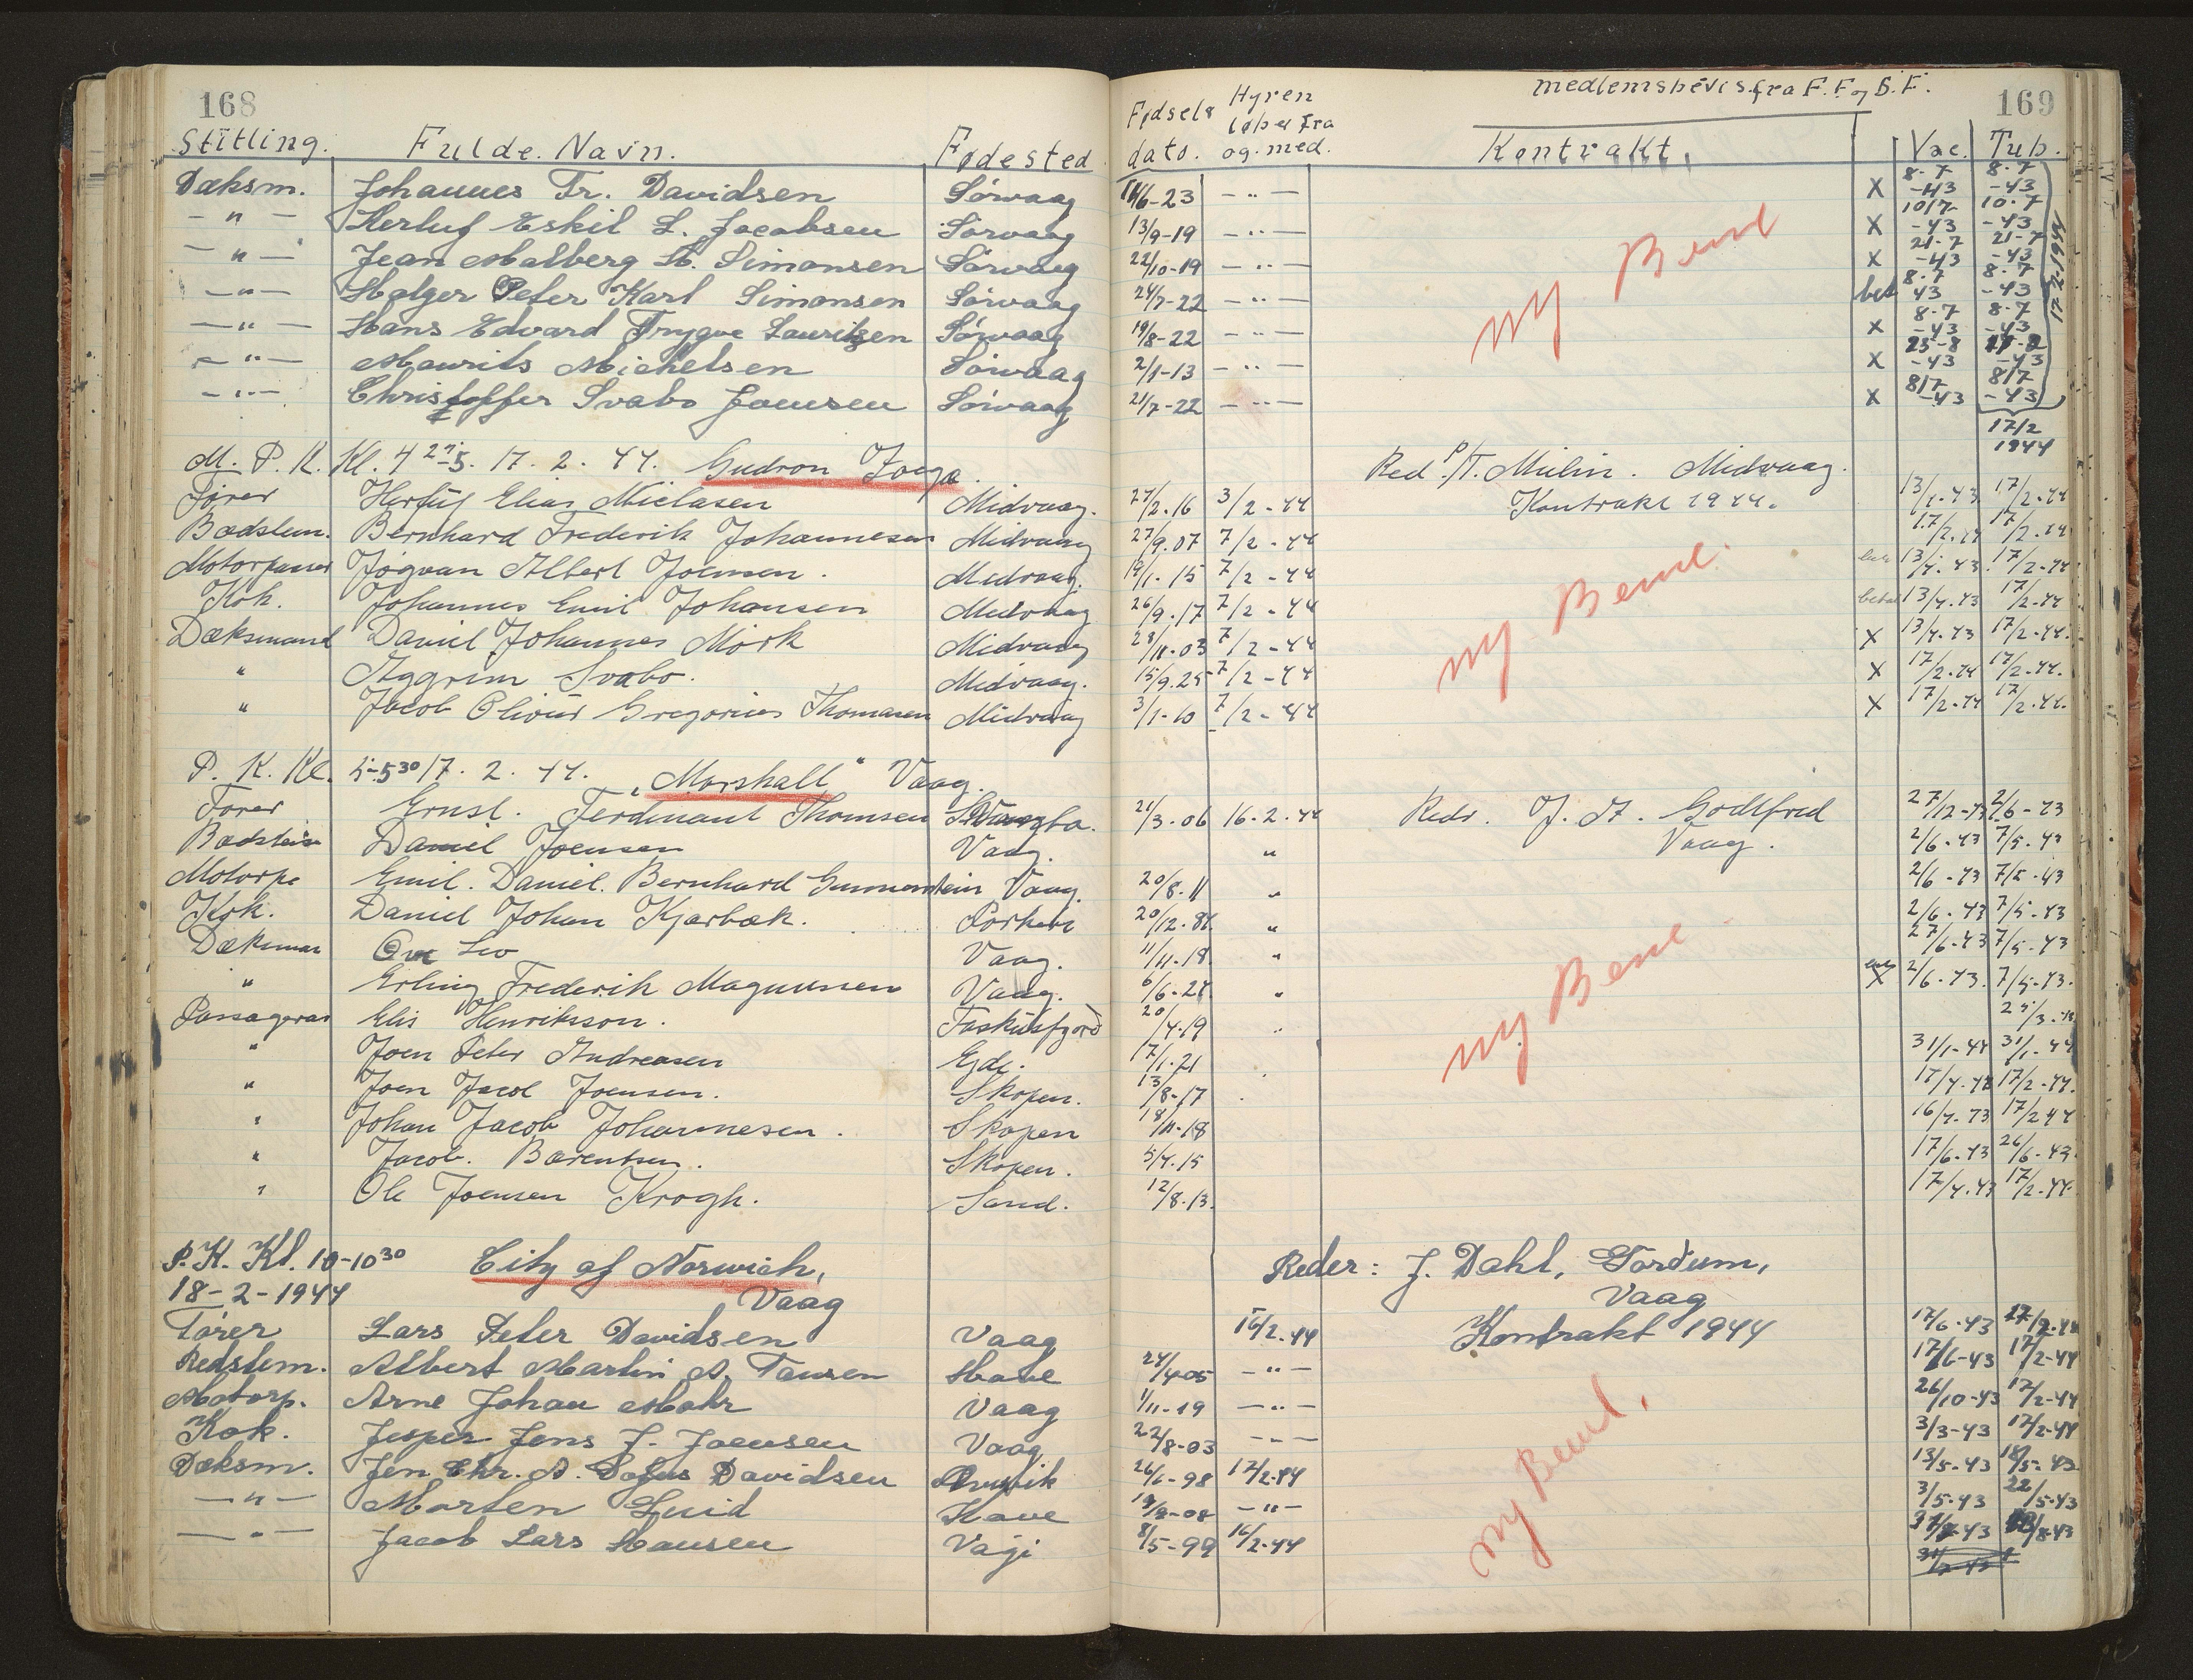 168
169
medlemsbevis fra F.F. og S.F.
Stilling. Fulde. Navn. Fødested Fødsels dato. Hyren løber fra og. med. Kontrakt. Vac. Tub.
Dæksm. Johannes Fr. Davidsen Sørvaag 14/6-23 - " - X 8-7 -43 8-7 -43
- " - Herluf Eskil L. Jacobsen Sørvaag 13/9-19 - " - X 10/7 -43 10-7 -43
- " - Jean Malberg H. Simonsen Sørvaag 22/10-19 - " - X 21-7 -43 21-7 -43
- " - Holger Peter Karl Simonsen Sørvaag 24/7-22 - " - bet 8-7 43 8-7 -43
- " - Hans Edvard Trygve Lauritzen Sørvaag 19/8-22 - " - X 8-7 -43 8-7 -43
- " - Maurits Michelsen Sørvaag 2/1-13 - " - X 25-8 -43 -43
- " - Christoffer Svabo Joensen Sørvaag 21/7-22 - " - X 8/7 -43 8/7 -43
17/2 1944
my Bem
M. P. K. Kl. 4 17. 2. 44. Gudron Joega. Red P/f. Miðlin. Midvaag.
Fører Herluf Elias Niclasen Midvaag. 27/2.16 3/2-44 Kontrakt 1944. 13/1-43 17/2-44
Bædstem. Bernhard Frederik Johannesen Midvaag 27/9.07 7/2-44 17/2.44 17/2.44
Motorpasser Jógvan Albert Joensen. Midvaag. 19/1-15 7/2-44 13/4.43 17/2-44
Kok. Johannes Emil Johansen Midvaag 26/9.17 7/2-44 13/4.43 17/2-44
Dæksmand Daniel Johannes Mörk Midvaag 28/11-03 7/2-44 X 13/4.43 17/2-44.
" Aggrim Svabo. Midvaag. 15/9.25 7/2-44 X 17/2.44 17/2-44.
" Jacob Olivur Gregorius Thomasen Midvaag 3/1-10 7/2-44 X 17/2-44 17/2.44.
my Bem.
P. K. Kl. 5-5 30 17. 2. 44. „Marshall“ Vaag.
Fører Ernst. Ferdinant Thomsen 21/3.06 16.2.44 Redr. J. A. Godtfred 27/12-43 2/6-43
Bædstem Daniel Joensen Vaag. " Vaag. 2/6.43 7/5.43
Motorpa Emil. Daniel. Bernhard Gunnerstein Vaag. 20/8.11 " 2/6-43 7/5-43
Kok. Daniel Johan Kjærbæk. Porkere 20/12.84 " 2/6.43 7/5.43
Dæksman Ove Leo Vaag. 11/11.18 " 27/6.43 7/5-43
" Erling Frederik Magnussen Vaag. 6/6-24 " X 2/6.43. 7/5-43.
Passagerer Elis Henriksson. Faskusfjord 20/4.19 "
" Joen Peter Andreasen Ejde. 17/1.21 31/1-44 31/1-44
" Joen Jacob Joensen. Skopen. 13/8-17 17/4-42 17/2-44.
" Johan Jacob Johannesen. Skopen 18/11.18 16/4.43 17/2 44
" Jacob. Bærentsen. Skopen. 5/4.15 17/6.43 26/6.43
" Ole Joensen Krogh. Sand. 12/8.13. 17/4.43 17/2.44.
my Bem
P.K. Kl. 10-10 30 City of Norwich, Reder: J. Dahl, Gørdum,
18-2-1944 Vaag Vaag
Fører Lars Peter Davidsen Vaag 16/2.44 Kontrakt 1944 17/6-43
Bedstem. Albert Martin A. Tausen Hove 24/4-05 - " - 17/6-43 17/2-44
Motorp. Arne Johan Mohr Vaag 1/11-19 - " - 26/10-43 17/2-44
Kok. Jesper Jens J. Joensen Vaag 22/8-03 - - - 3/3-43 17/2-44
Dæksm. Jen Chr. A. Dafus Davidsen Ørnevik 26/6-98 17/2-44 13/5-43 18/5-43
- " - Morten Luid Hove 19/2-08 - " - 3/5-43 22/5-43
- " - Jacob Lars Hansen Vági 8/5-99 16/2-44
my Bem.